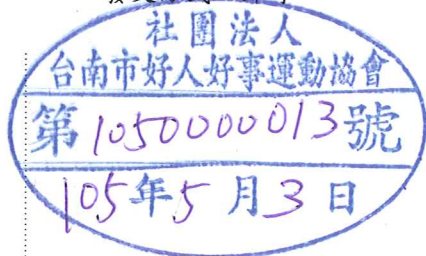 社團法人
台南市好人好事運動協會
第1050000013號
105年5月3日